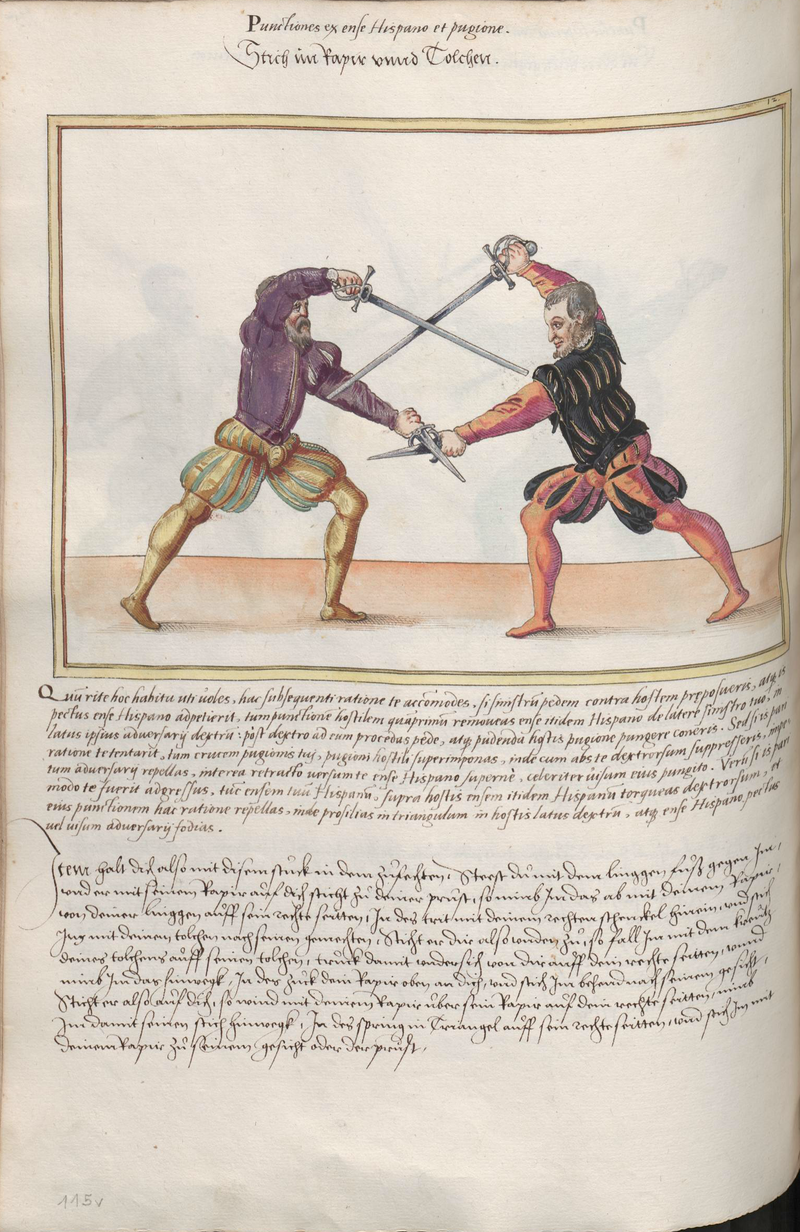 Punctiones ex ense Hispano et pugione.
Stich im Rapir unnd Tolchen.
12
Quum rite hoc habitu uti voles, hac subsequenti ratione te accomodes, si sinistrum pedem contra hostem proposueris, atque is
pectus ense Hispano adpetierit, tum punctione hostilem quamprimum removeas ense itidem Hispano de latere sinistro tuo, in
latus ipsius adversarij dextrum: post dextro ad eum procedas pede, atque pudenda hostis pugione pungere coneris. Sed si is pari
ratione te tentarit, tum crucem pugionis tuj, pugioni hostili superimponas, inde cum abs te dextrorsum suppresseris,
tum adversarij repellas, interea retracto versum te ense Hispano superne, celeriter visum eius pungito. Verum si is pari
modo te fuerit adgressus, tuc ensem tuum Hispanum, supra hostis ensem itidem Hispanum torqueas dextrorsum, et
eius punctionem hac ratione repellas, inde prosilias in triangulum in hostis latus dextrum, atque ense Hispano pectus
vel visum adversarij fodias.
Item halt dich also mit disem stuck in dem zufechten, Steest du mit dem linggen fuß gegen Im,
unnd er mit seinem Rapir auf dich sticht zu deiner prust, so nimb Im das ab mit deinem Rapir,
von deiner linggen auff sein rechte seitten, In des trit mit deinem rechten schenckel hinein unnd stich
Ime mit deinem tolchen nach seinen gemechten, Sticht er dir also unden zu, so fall Im mit dem kreutz
deines tolchens auff seinen tolchen, truck damit undersich von dir auff dein rechte seitten, unnd
nimb Im das hinwegk, In des zuck dein Rapir oben an dich, und stich Im behend nach seinem gesicht,
Sticht er also auf dich, so wind mit deinem Rapir uber sein Rapir auf dein rechte seitten, nimb
Im damit seinen stich hinwegk, In des spring in Triangel auff sein rechte seitten, unnd stich Im mit
deinem Rapir zu seinem gesicht oder der prust,
115v